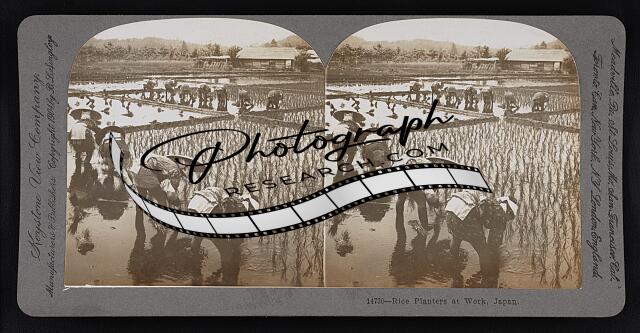 Keystone View Company
Manufacturers & Publishers. Copyright 1904 by B.L.Singley
Meadville Pa., St. Louis, Mo.
San Francisco, Cal.
Toronto Can., New York, N.Y. London, England.
Photograph
RESEARCH.COM
14730—Rice Planters at Work, Japan.